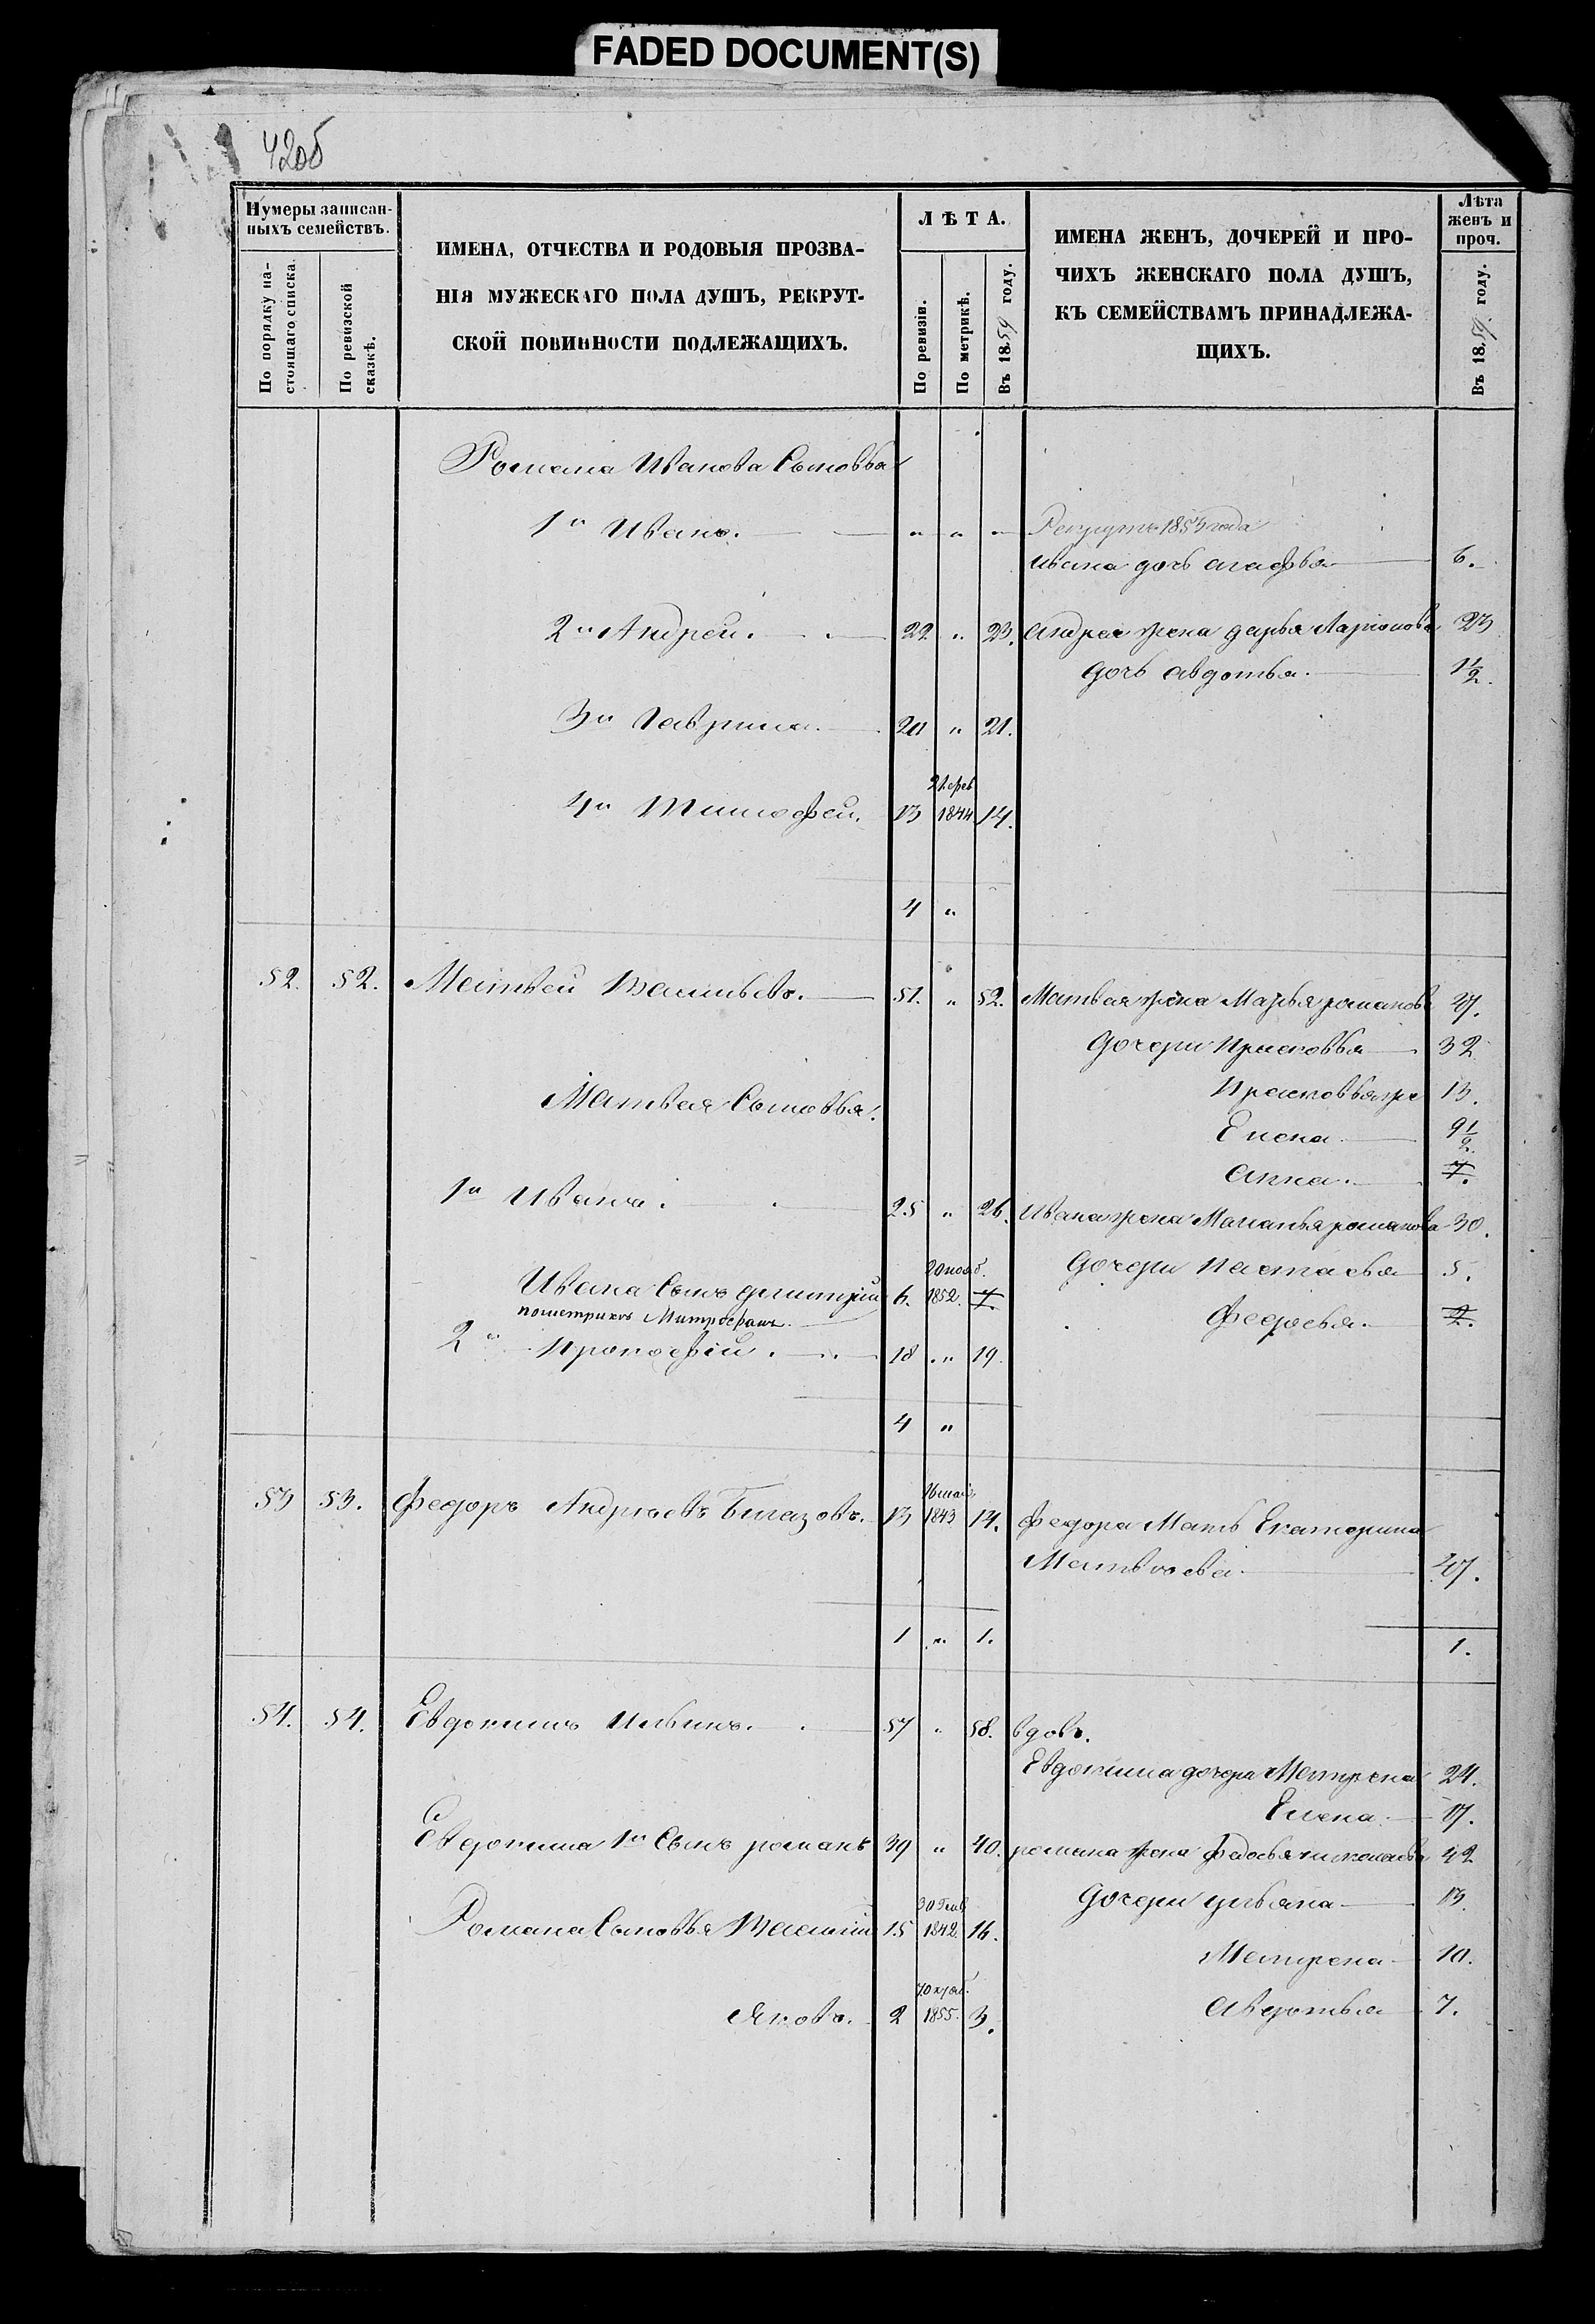 FADED DOCUMENT(S)
42об
Нумеры записан-
ныхъ семействъ.
По порядку на-
стоящаго списка.
По ревизской
сказкѣ.
ИМЕНА, ОТЧЕСТВА И РОДОВЫЯ ПРОЗВА-
НІЯ МУЖЕСКАГО ПОЛА ДУШЪ, РЕКРУТ-
СКОЙ ПОВИННОСТИ ПОДЛЕЖАЩИХЪ.
ЛѢТА.
По ревизіи.
По метрикѣ.
Въ 1859 году.
ИМЕНА ЖЕНЪ, ДОЧЕРЕЙ И ПРО-
ЧИХЪ ЖЕНСКАГО ПОЛА ДУШЪ,
КЪ СЕМЕЙСТВАМЪ ПРИНАДЛЕЖА-
ЩИХЪ.
Лѣта
женъ и
проч.
Въ 1859 году.
Романа Иванова Сыновья
1й Иванъ. " " " Рекрутъ 1853 года
Ивана дочь агафья 6.
2й Андрей. 22 " 23. андрея жена дарья Ларіонова 23
дочь авдотья. 1 1/2.
3й Гаврила. 20 " 21.
21 фев
4й Тимофей. 13 1844 14.
4 "
52. 52. Матвей Васильевъ. 51. " 52. Матвея жена Марья романов 47.
дочери Прасковья 32
Матвея Сыновья. Прасковья же 13.
Елена 9 1/2.
анна. 7.
1й Иванъ. 25 " 26. Ивана жена Маланья романова 30.
20 нояб.
Ивана Сынъ дмитрій 6. 1852. 7. дочери Настасья 5.
пометрикъ Митрофанъ. Федосья. 2.
2й Прокофій. 18 " 19.
4 "
53 53. Федоръ Андреевъ 13 1843 14. федора Мать Екатерина
Матвѣева. 47.
1 " 1. 1.
54. 54. Евдокимъ Ильинъ. 57 " 58. вдовъ.
Евдокима дочери Матрена 24.
Елена. 17.
Евдокима 1й Сынъ романъ 39 " 40. романа жена федосья николаева 42
дочери ульяна 13.
30 Генв
Романа Сыновья Василій 15 1842. 16.
Матрена 10.
Яковъ. 2 1855. 3. авдотья 7.